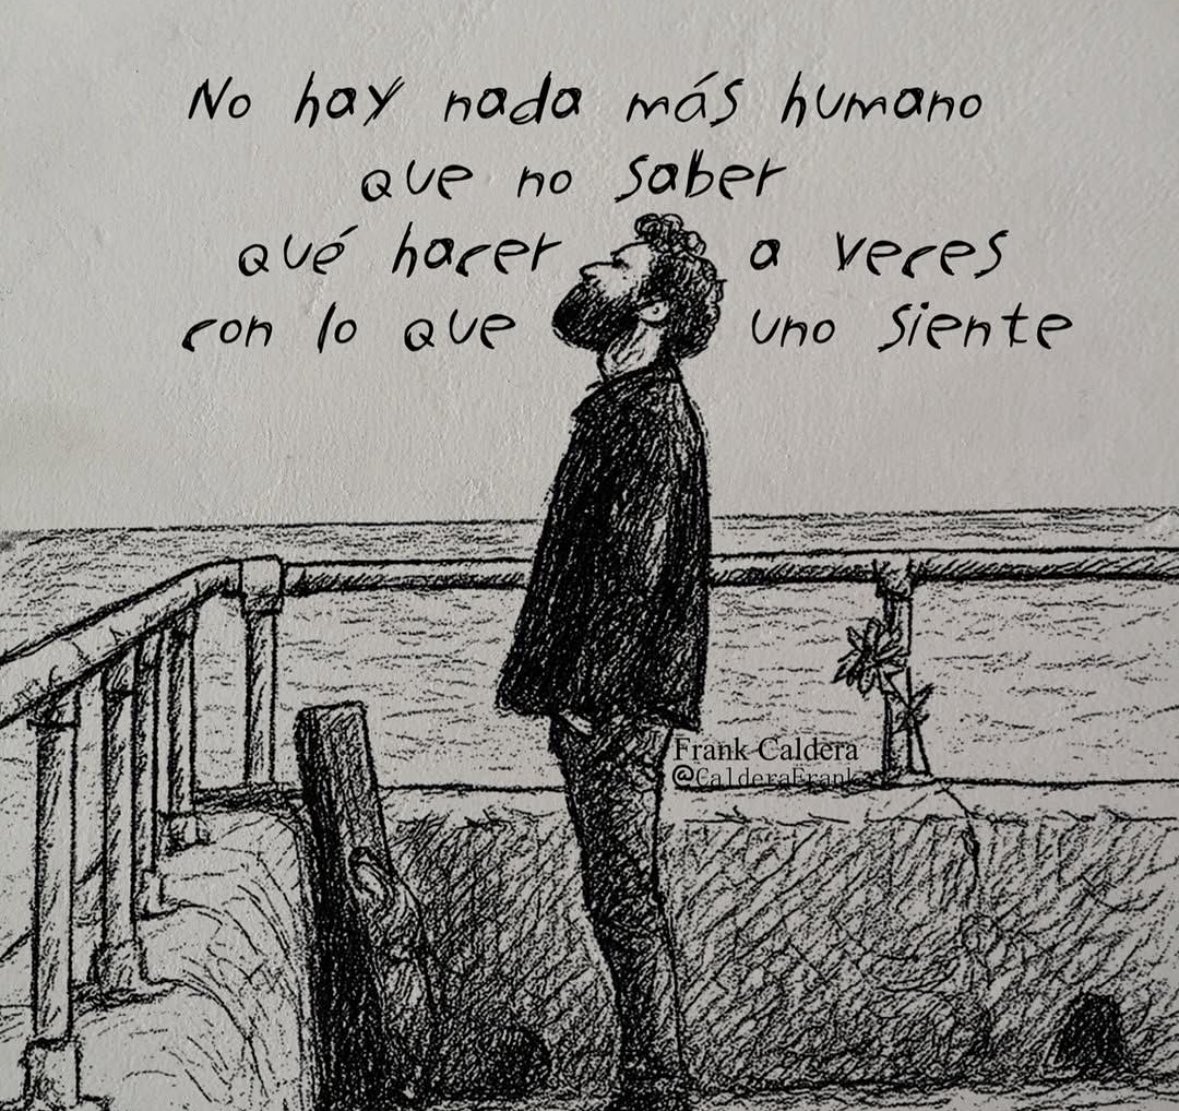 No hay nada más humano
que no saber
qué hacer a veces
con lo que uno siente
Frank Caldera
@CalderaFrank